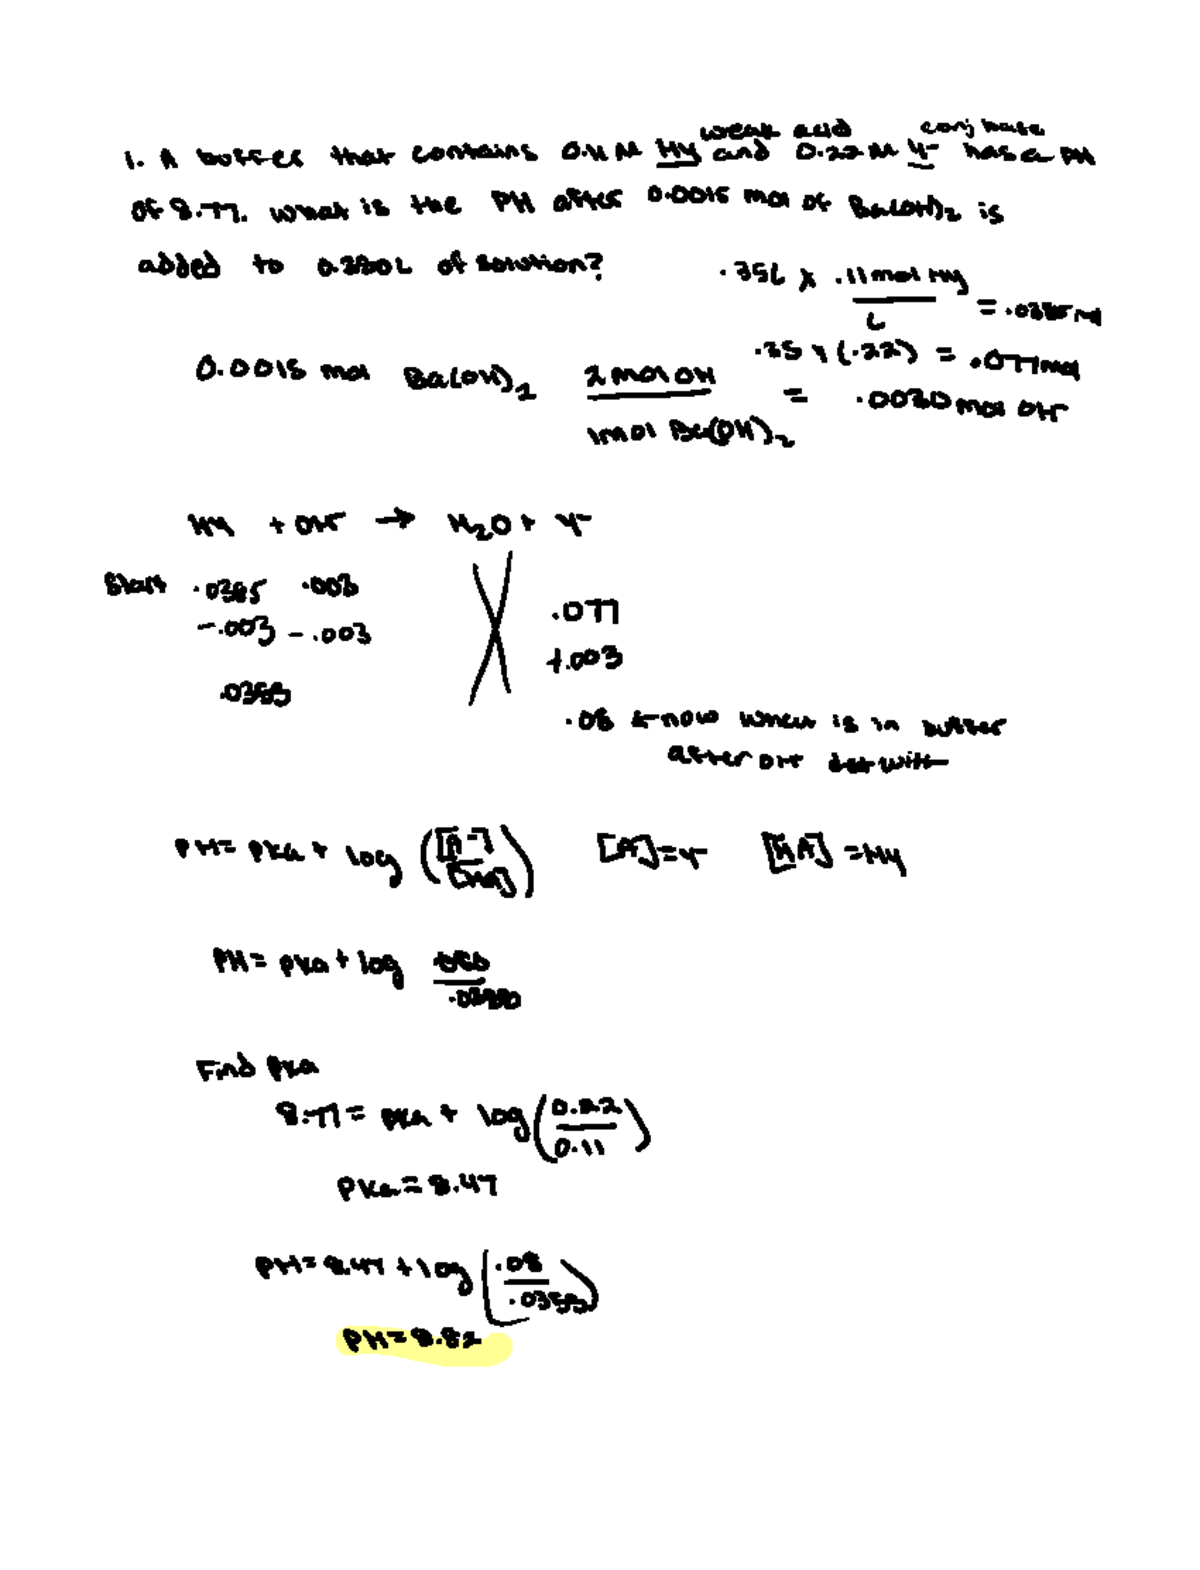 weak acid conj base
1. A buffer that contains 0.11 M HY and 0.22 M Y- has a PH
of 8.77. What is the PH after 0.0015 mol of Ba(OH)2 is
added to 0.350 L of solution?
.35L x .11 mol HY
L
= .0385 mol
.35 x (.22) = .077 mol
0.0015 mol Ba(OH)2 2 mol OH = .0030 mol OH-
1 mol Ba(OH)2
HY + OH- → H2O + Y-
Start .0385 .003
.077
-.003 -.003
+.003
.0355
.08 now what is in buffer
after OH-
PH = PKa + log ([A-]/[HA]) [A-] = Y- [HA] = HY
PH = PKa + log
Find PKa
8.77 = PKa + log (0.22/0.11)
PKa = 8.47
PH = 8.47 + log (.08/.0355)
PH = 8.82